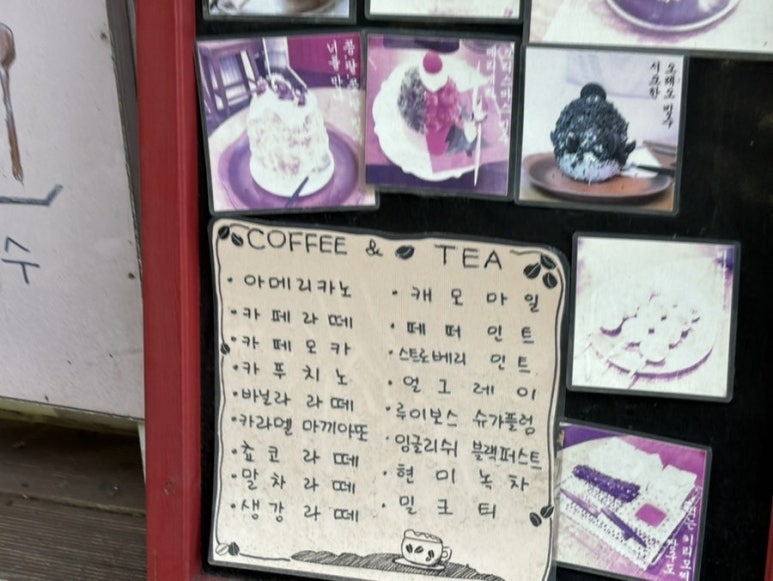 수
COFFEE & TEA
• 아메리카노
• 카페라떼
• 카페오카
• 카푸치노
• 바닐라 라떼
• 카라멜 마끼아또
• 쵸코 라떼
• 말차 라떼
• 생강 라떼
• 캐모마일
• 페퍼민트
• 스트로베리 민트
• 얼그레이
• 루이보스 슈가플럼
• 잉글리쉬 블랙퍼스트
• 현미녹차
• 밀크티